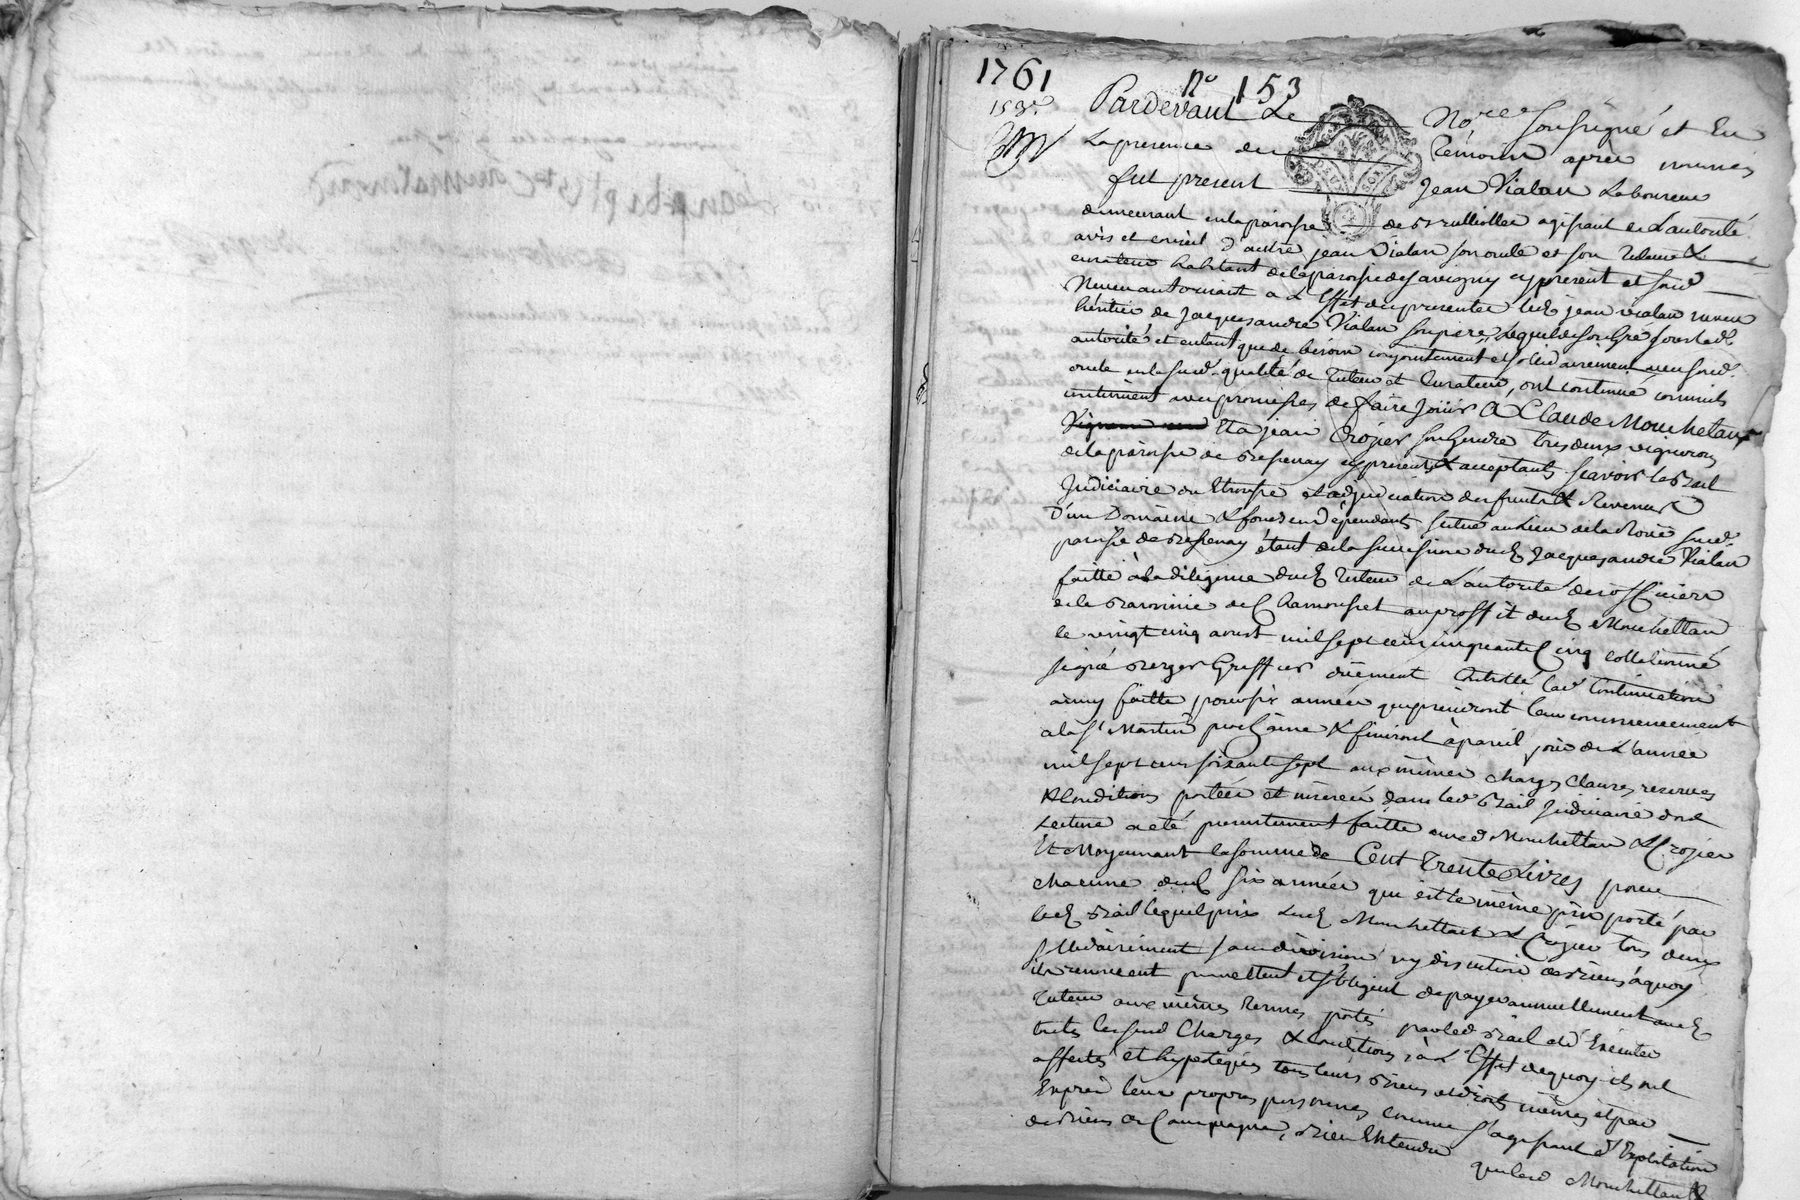 1761
n° 153
153e
Pardevant Le No.re soussigné et En
La presence des Témoins après nommés
fut present Jean Vialan Laboureur
demeurant en la paroisse de Brullioles agissant de L'autorité
avis et conseil d'autre jean Vialan son oncle et son Tuteur &
curateur habitant de la paroisse de Savigny cy present et sond.
Neveu autorisant a L'Effet des presentes led. jean vialan neveu
héritier de Jacques andré Vialan son pere, Lequel de son Gré sous lad.
autorité et entant que de besoin conjointement et solidairement avec sond.
oncle en la susd. qualité de Tuteur et Curateur, ont continué
avec promesses de faire Joüir A Claude Mouchetan
Vigneron Et a jean Crozier son Gendre tous deux vignerons
de la paroisse de Bessenay cy presents & acceptants scavoir le Bail
Judiciaire ou Etrousse et adjudication des fruits & Revenus
D'un Domaine & fonds en Dépendants situé au Lieu de la Roüe susd.
paroisse de Bessenay étant de la succession dud. Jacques andré Vialan
faitte à la diligence dud. Tuteur de L'autorité des officiers
de la Baronnie de Chamousset au proffit dud. Mouchettan
le vingt cinq aoust mil sept cent cinquante Cinq collationné
signé Berger Greffier düement Controllé lad. Continuation
ainsy faitte pour six années qui prendront leur commencement
a la St Martin prochaine & finiront à pareil jour de L'année
mil sept cent soixante sept aux mêmes charges clauses reserves
& Conditions portées et inserées dans led. Bail Judiciaire dont
Lecture a eté presentement faitte auxd. Mouchettan & Crozier
Et Moyennant la somme de Cent Trente Livres pour
chacune desd. six années qui est le même prix porté par
led. Bail lequel prix Lesd. Mouchettan & Crozier tous deux
solidairement sans division ny discution de biens à quoy
ils renoncent promettent et s'obligent de payer annuellement aud.
Tuteur aux mêmes termes portés par led. Bail et d'Exécuter
toutes les susd. Charges & Conditions, à L'Effet de quoy ils ont
affectés et hypotéqués tous leurs Biens et droits mêmes et par
Exprès leurs propres personnes comme s'agissant d'Exploitation
de Biens de Campagne, Bien Entendu
que lesd. Mouchettan &